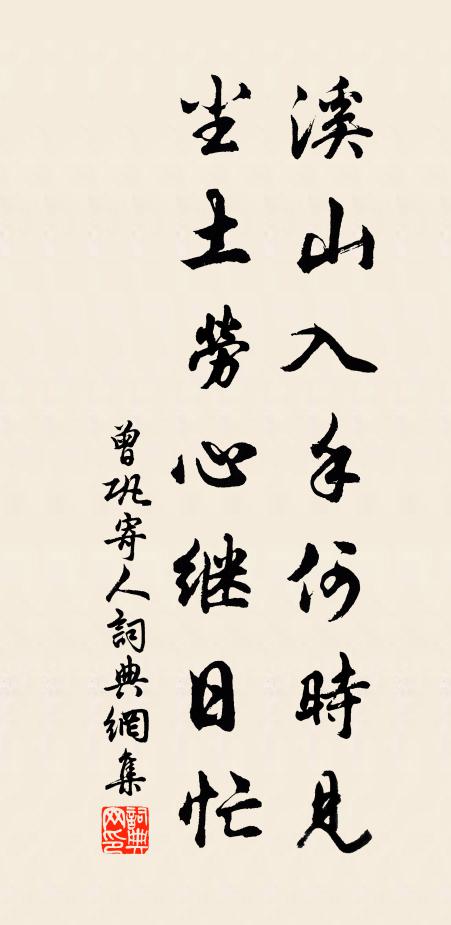 溪山入手何時見
尘土勞心继日忙
曾巩寄人詞典網集
詞典网印